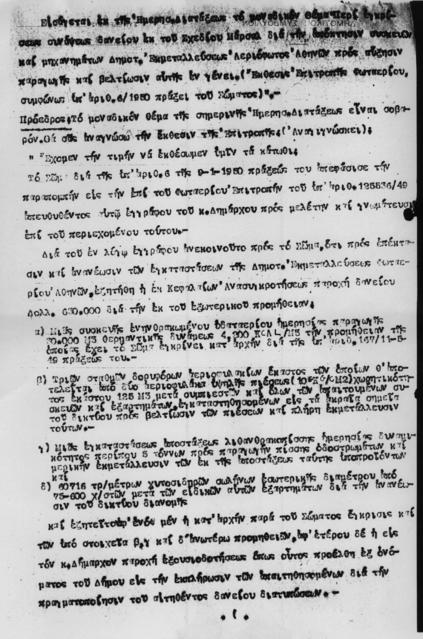 Εἰσάγεται ἐκ τῆς Ἡμερησ.Διατάξεως τό μοναδικόν θέμα "Περί ἐγκρί-
σεως συνάψεως δανείου ἐκ τοῦ Σχεδίου Μάρσαλ διά τήν ἀπόκτησιν συσκευῶν
καί μηχανημάτων Δημοτ. Ἐκμεταλλεύσεως Ἀεριόφωτος Ἀθηνῶν πρός αὔξησιν
παραγωγῆς καί βελτίωσιν αὐτῆς ἐν γένει. (Ἔκθεσις Ἐπιτροπῆς Φωταερίου,
συμφώνως ὑπ' ἀριθ.6/1950 πράξει τοῦ Σώματος)".-
Πρόεδρος: Τό μοναδικόν θέμα τῆς σημερινῆς Ἡμερησ.Διατάξεως εἶναι σοβα-
ρόν. Θά σᾶς ἀναγνώσω τήν ἔκθεσιν τῆς Ἐπιτροπῆς. (Ἀναγιγνώσκει):
" Ἔχομεν τήν τιμήν νά ἐκθέσωμεν ὑμῖν τά κάτωθι:
Τό Σῶμα διά τῆς ὑπ' ἀριθ. 6 τῆς 9-1-1950 πράξεώς του ἀπεφάσισε τήν
παραπομπήν εἰς τήν ἐπί τοῦ Φωταερίου Ἐπιτροπήν τοῦ ὑπ' ἀριθ. 125836/49
ἀπευθυνθέντος αὐτῷ ἐγγράφου τοῦ κ.Δημάρχου πρός μελέτην καί γνωμάτευσιν
ἐπί τοῦ περιεχομένου τούτου.-
Διά τοῦ ἐν λόγῳ ἐγγράφου ἀνεκοινοῦτο πρός τό Σῶμα, ὅτι πρός ἐπέκτα-
σιν καί ἀνανέωσιν τῶν ἐγκαταστάσεων τῆς Δημοτ. Ἐκμεταλλεύσεως Φωταε-
ρίου Ἀθηνῶν, ἐζητήθη ἐκ Κεφαλαίων Ἀνασυγκροτήσεως παροχή δανείου
δολλ. 630.000 διά τήν ἐκ τοῦ ἐξωτερικοῦ προμήθειαν:
α) Μιᾶς συσκευῆς ἐνηνθρακωμένου ὑδαταερίου ἡμερησίας παραγωγῆς
30.000 Μ3 θερμαντικῆς δυνάμεως 4.200 KCAL/Μ3 τήν προμήθειαν τῆς
ὁποίας ἔχει τό Σῶμα ἐγκρίνει κατ' ἀρχήν διά τῆς ὑπ' ἀριθ. 167/11-6-
49 πράξεώς του.-
β) Τριῶν σταθμῶν δορυφόρων ἀεριοφυλακίων ἕκαστος τῶν ὁποίων θ' ἀπο-
τελεῖται ἀπό δύο ἀεριοφυλάκια ὑψηλῆς πιέσεως χωρητικότη-
τος ἑκάστου 125 Μ3 μετά συμπιεστῶν καί ὅλων τῶν ἀπαιτουμένων συ-
σκευῶν καί ἐξαρτημάτων, ἐγκαταστησθησομένων εἰς τά ἀκραῖα σημεῖα
τοῦ δικτύου πρός βελτίωσιν τῶν πιέσεων καί πλήρη ἐκμετάλλευσιν
τούτων.-
γ) Μιᾶς ἐγκαταστάσεως ἀποστάξεως λιθανθρακοπίσσης ἡμερησίας δυναμι-
κότητος περίπου 5 τόννων πρός παραγωγήν πίσσης ὁδοστρωμάτων καί
μερικήν ἐκμετάλλευσιν τῶν ἐκ τῆς ἀποστάξεως ταύτης ὑποπροϊόντων
καί
δ) 60716 τρ/μέτρων χυτοσιδηρῶν σωλήνων ἐσωτερικῆς διαμέτρου ἀπό
75-600 χ/στῶν μετά τῶν εἰδικῶν αὐτῶν ἐξαρτημάτων διά τήν ἀνανέω-
σιν τοῦ δικτύου διανομῆς
καί ἐζητεῖτο ἀφ' ἑνός μέν ἡ κατ' ἀρχήν παρά τοῦ Σώματος ἔγκρισις καί
τῶν ὑπό στοιχεῖα β, γ καί δ ἀνωτέρω προμηθειῶν, ἀφ' ἑτέρου δέ ἡ εἰς
τόν κ.Δήμαρχον παροχή ἐξουσιοδοτήσεως ὅπως οὗτος προέλθῃ ἐξ ὀνό-
ματος τοῦ Δήμου εἰς τήν ἐκπλήρωσιν τῶν ἀπαιτηθησομένων διά τήν
πραγματοποίησιν τοῦ αἰτηθέντος δανείου διατυπώσεων.-